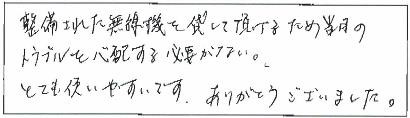 整備された無線機を貸して頂けるため当日の
トラブルを心配する必要がない。
とても使いやすいです、ありがとうございました。